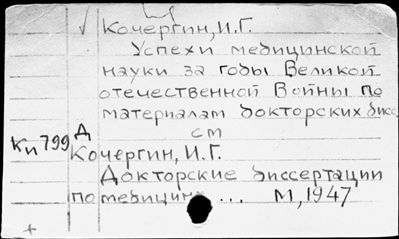 Кочергин, И.Г.
Успехи медицинской
науки за годы Великой
отечественной Войны по
материалам докторских дисс.
см
Кн 799 Д
Кочергин, И.Г.
Докторские диссертации
по медицине ... М, 1947